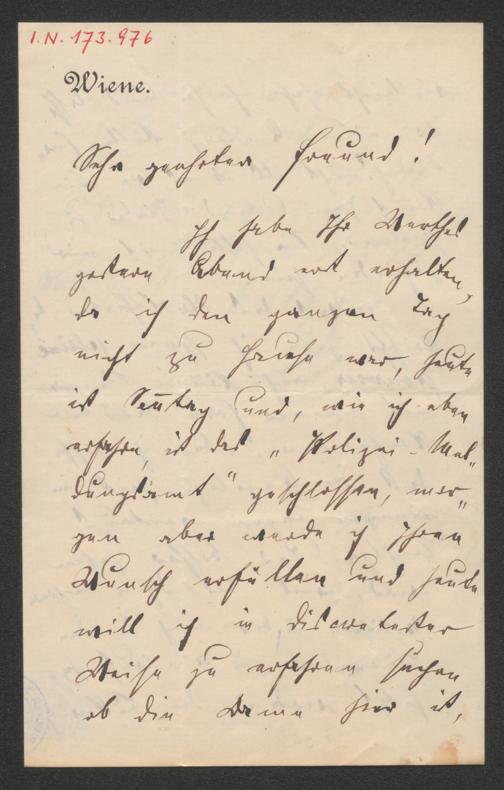 I.N. 173.976
Wiene.
Sehr geehrter Freund!
Ich habe Ihr Werthes
gestern Abend erst erhalten,
da ich den ganzen Tag
nicht zu Hause war, heute
ist Sonntag und, wie ich eben
erfahre, ist das „Polizei-Mel-
dungsamt" geschlossen, mor-
gen aber werde ich Ihren
Wunsch erfüllen und heute
will ich in discretester
Weise zu erfahren suchen
ob die Dame hier ist,